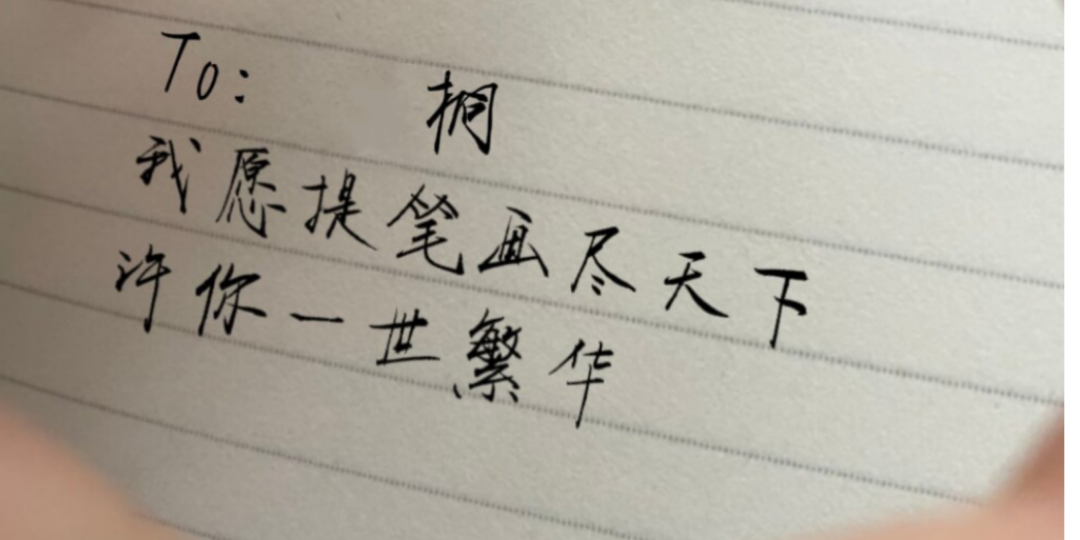 To: 桐
我愿提笔画尽天下
许你一世繁华